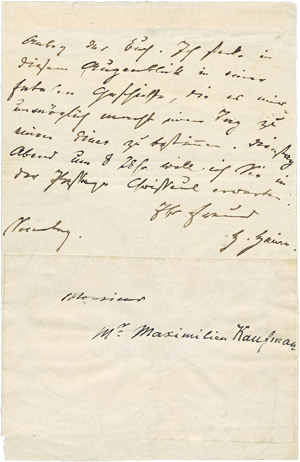 Ich stecke in
diesem Augenblick in einer
fatalen Geschichte, die es mir
unmöglich macht einen Tag zu
einem Diner zu bestimen. Dienstag
Abend um 8 Uhr will ich Sie in
der Passage erwarten.
Ihr Freund
H. Heine.
Sonntag.
Monsieur
Mr. Maximilien Kaufman